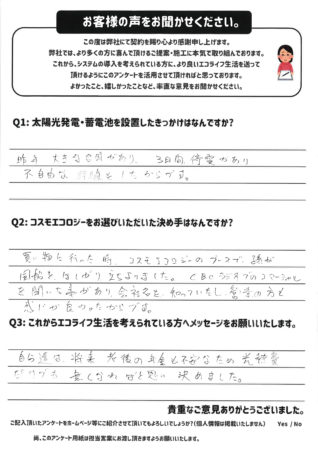 お客様の声をお聞かせください。
この度は弊社にて契約を賜り心より感謝申し上げます。
弊社では、より多くの方に喜んで頂けるご提案・施工に本気で取り組んでおります。
これから、システムの導入を考えられている方に、より良いエコライフ生活を送って
頂けるようにこのアンケートを活用させて頂ければと思っております。
よかったこと、嬉しかったことなど、率直な意見をお聞かせください。
Q1: 太陽光発電・蓄電池を設置したきっかけはなんですか?
昨年 大きな台風があり、3日間停電があり
不自由な 体験をしたからです。
Q2: コスモエコロジーをお選びいただいた決め手はなんですか?
買い物に行った時、コスモエコロジーのブースで、孫が
風船をほしがり立ちよりました。CBCラジオでのコマーシャル
を聞いた事があり、会社名を知っていたし、営業の方も
感じが良かったからです。
Q3: これからエコライフ生活を考えられている方へメッセージをお願いいたします。
自分達は、将来 老後の年金も不安なため 光熱費
だけでも 無くなればと思い 決めました。
貴重なご意見ありがとうございました。
ご記入頂いたアンケートをホームページ等にご紹介させて頂いてもよろしいでしょうか?(個人情報は掲載いたしません) Yes / No
尚、このアンケート用紙は担当営業にお渡し頂きますようお願いいたします。